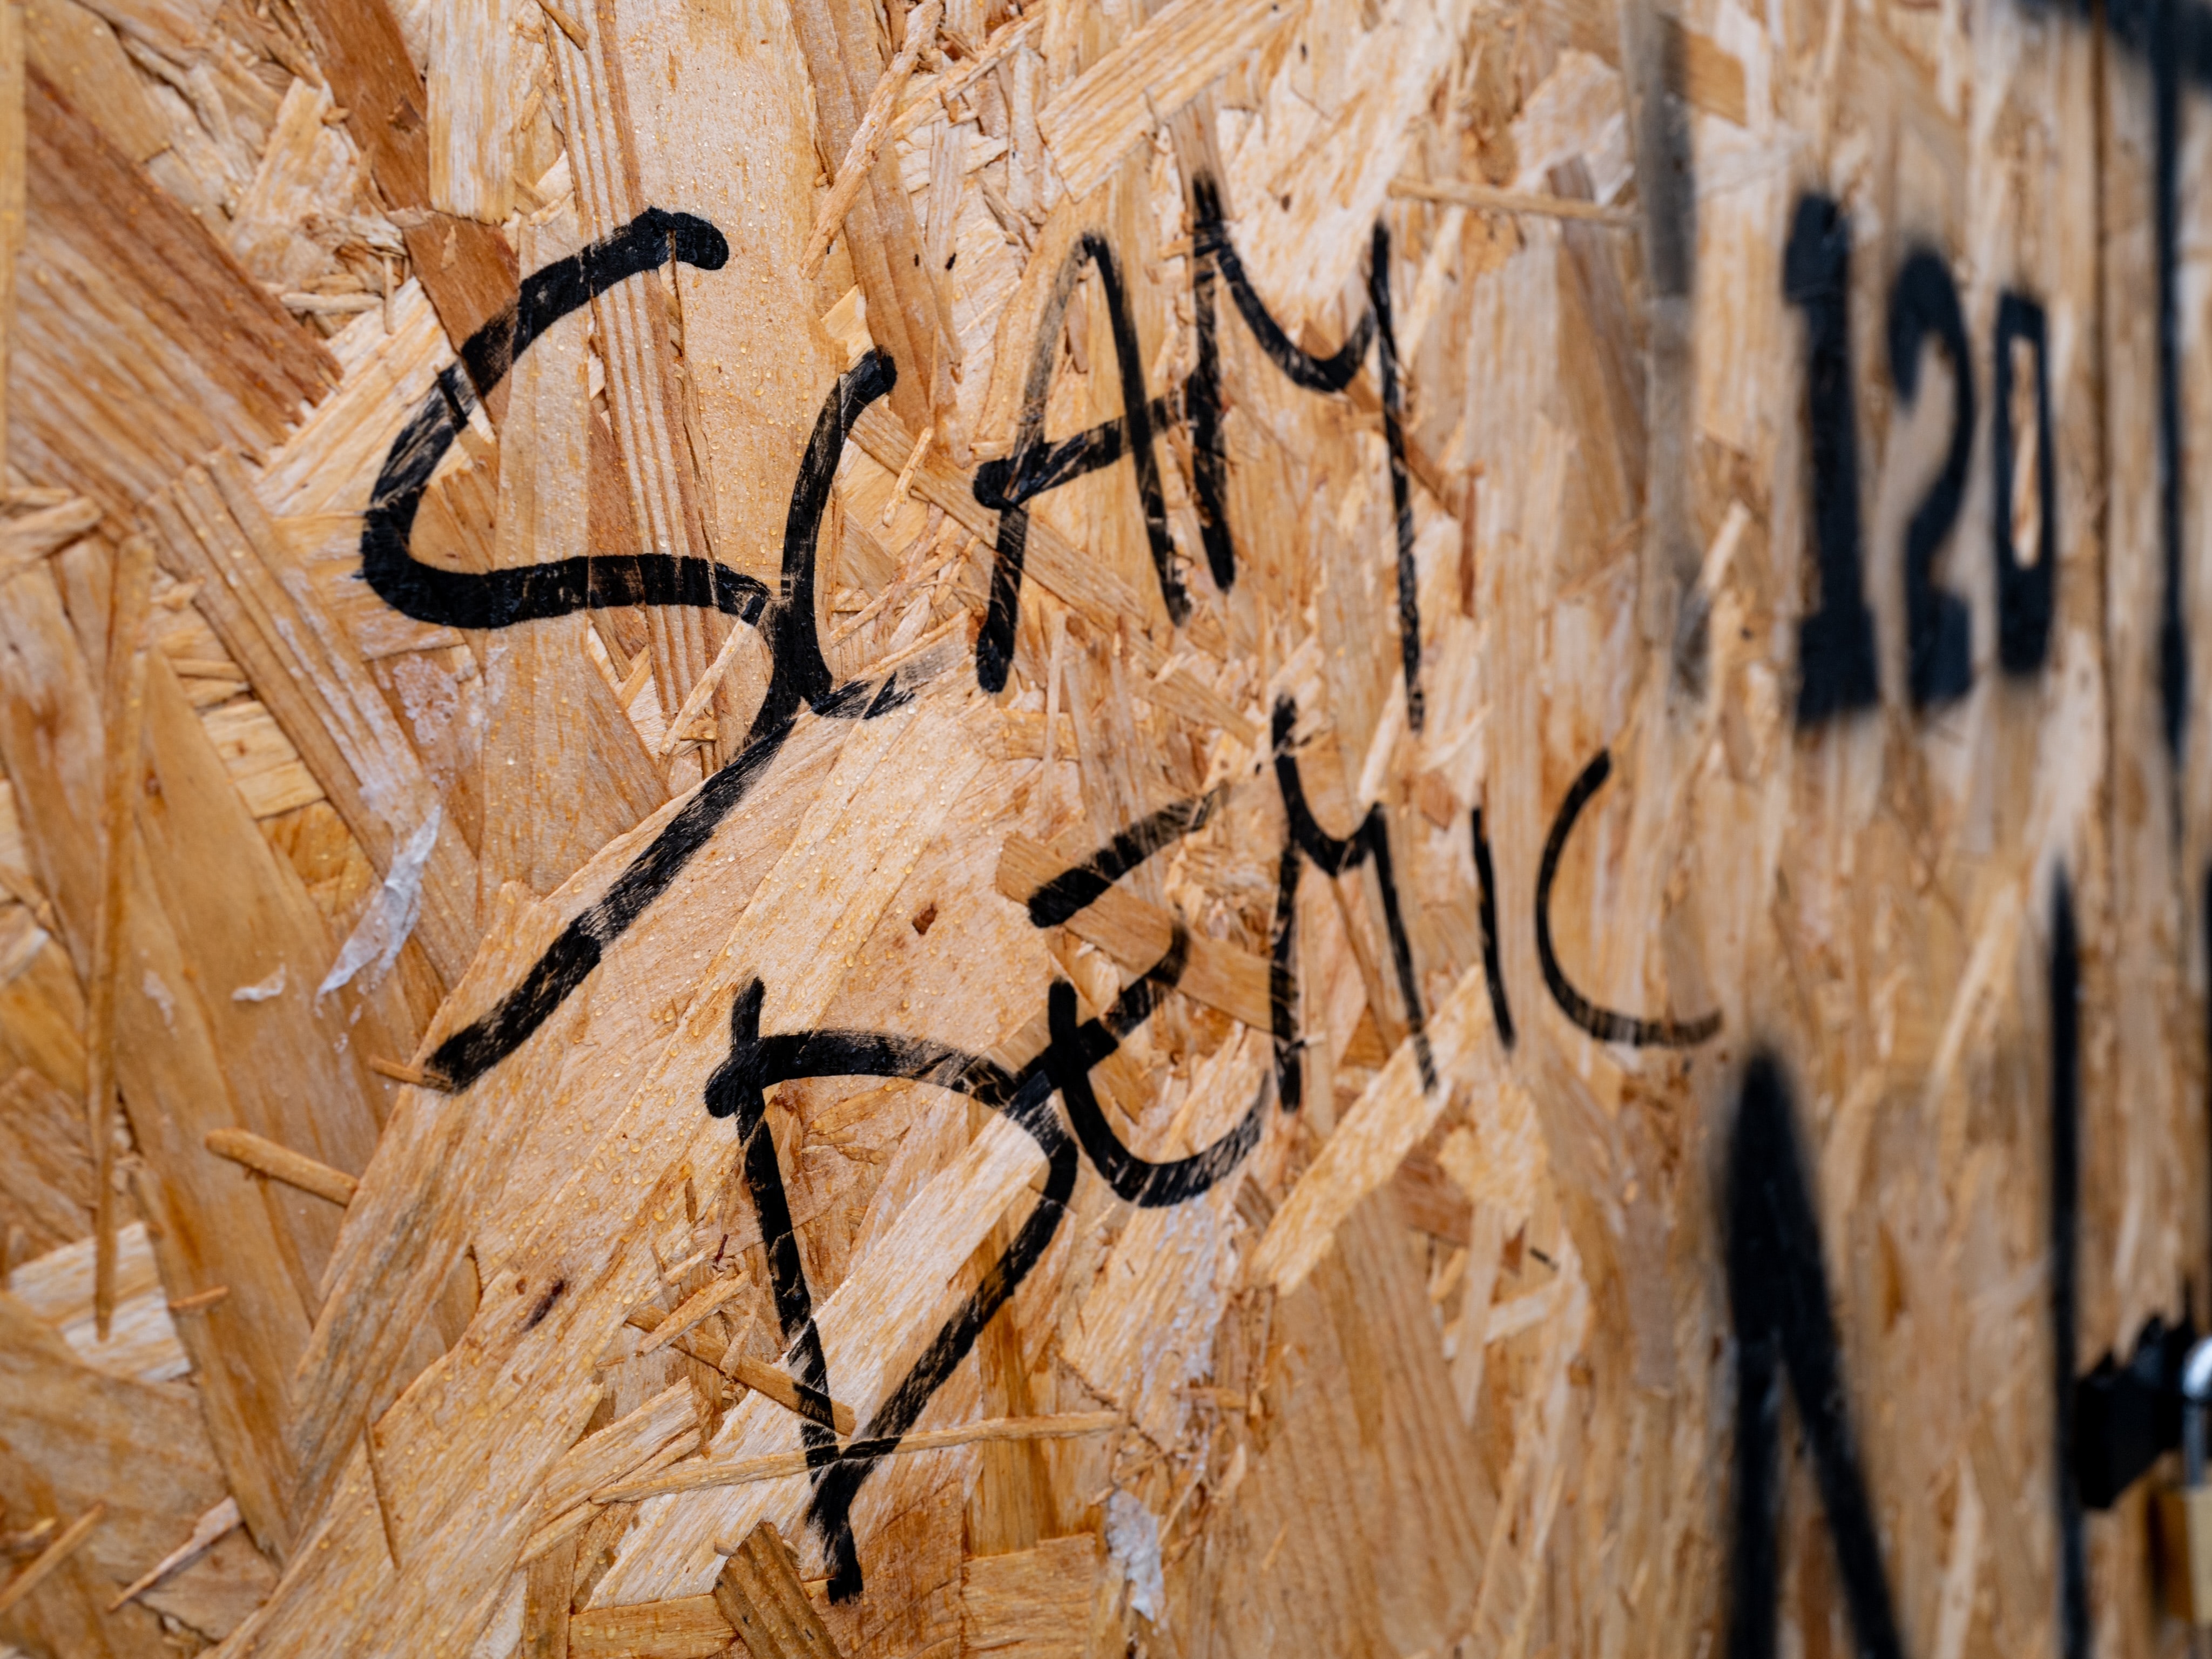 SCAM
DEMIC
120